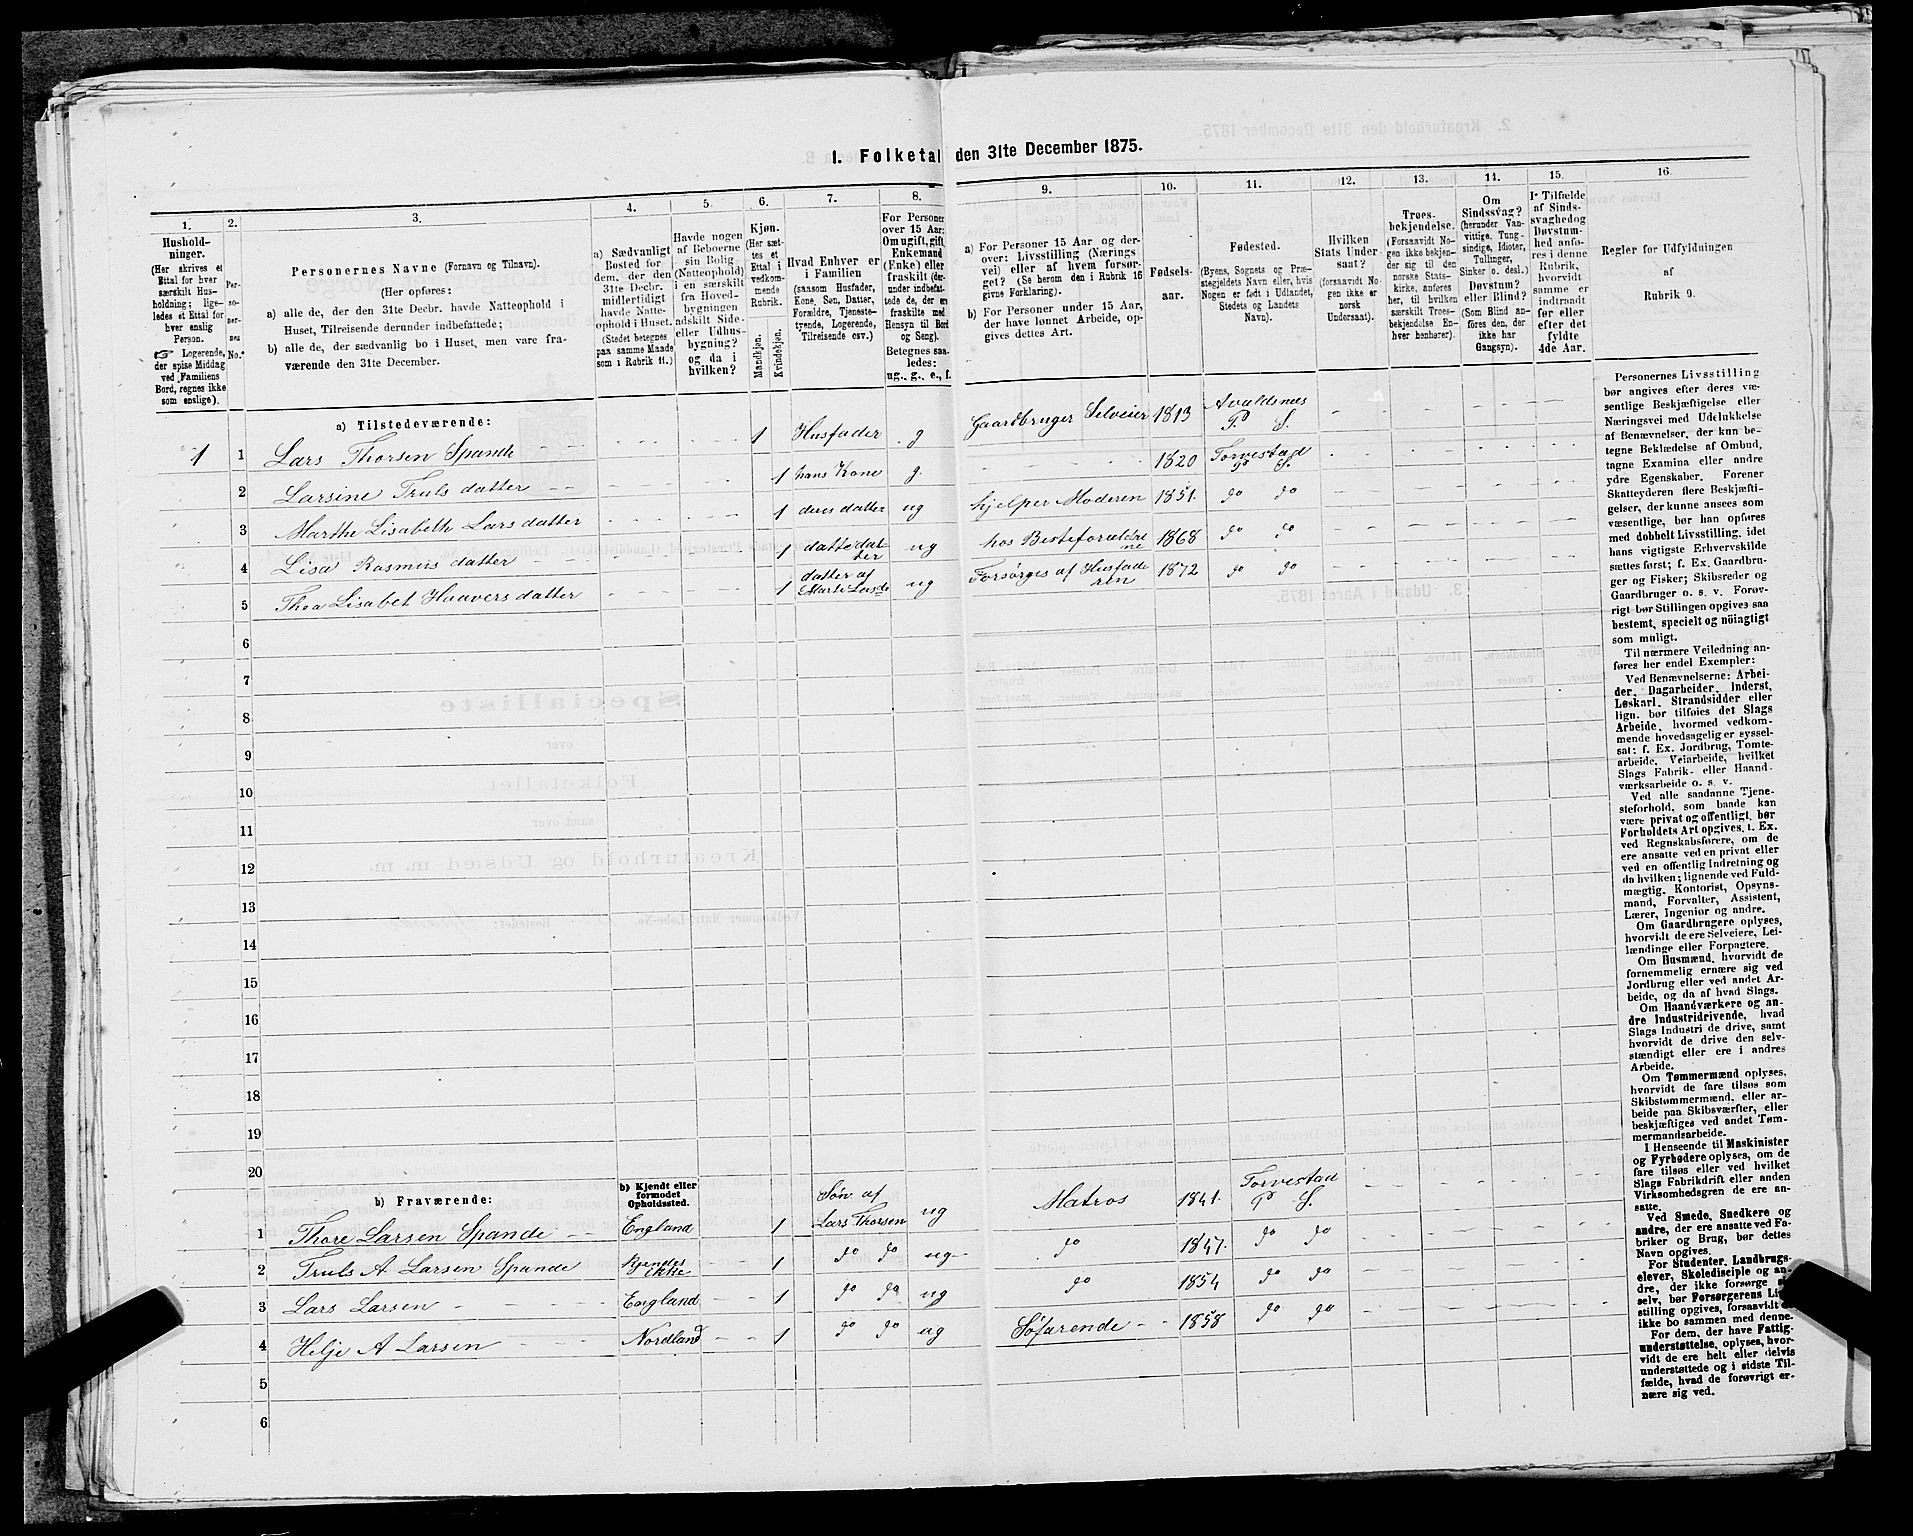 1. Folketal den 31te December 1875.
1.
Hushold-
ninger.
(Her skrives et
Ettal for hver
særskilt Hus-
holdning; lige-
ledes et Ettal for
hver enslig
Person.
☞ Logerende,
der spise Middag
ved Familiens
Bord, regnes ikke
som enslige).
2.
Per-
so-
per-
nes
No.
3.
Personernes Navne (Fornavn og Tilnavn).
(Her opføres:
a) alle de, der den 31te Decbr. havde Natteophold i
Huset, Tilreisende derunder indbefattede;
b) alle de, der sædvanlig bo i Huset, men vare fra-
værende den 31te December.
4.
a) Sædvanligt
Bosted for
dem, der den
31te Decbr.
midlertidigt
havde Natte-
ophold i Huset.
(Stedet betegnes
paa samme Maade
som i Rubrik 11.)
5.
Havde nogen
af Beboerne
sin Bolig
(Natteophold)
i en særskilt
fra Hoved-
bygningen
adskilt Side-
eller Udhus-
bygning?
og da i
hvilken?
6.
Kjøn.
(Her sæt-
tes et
Ettal i
vedkom-
mende
Rubrik.
Mandkjøn.
Kvindekjøn.
7.
Hvad Enhver er
i Familien
(saasom Husfader,
Kone, Søn, Datter,
Forældre, Tjeneste-
tyende, Logerende,
Tilreisende osv.)
8.
For Personer
over 15 Aar:
Om ugift, gift,
Enkemand
(Enke) eller
fraskilt (der-
under indbefat-
tede de, der ere
fraskilte med
Hensyn til Bord
og Seng).
Betegnes saa-
ledes:
ug., g., e., f.
9.
a) For Personer 15 Aar og der-
over: Livsstilling (Nærings
vei) eller af hvem forsør-
get? (Se herom den i Rubrik 16
givne Forklaring).
b) For Personer under 15 Aar,
der have lønnet Arbeide, op-
gives dettes Art.
10.
Fødsels-
aar.
11.
Fødested.
(Byens, Sognets og Præ-
stegjeldets Navn eller, hvis
Nogen er født i Udlandet,
Stedets og Landets
Navn).
12.
Hvilken
Stats Under-
saat?
(forsaavidt No-
gen ikke er
norsk
Undersaat).
13.
Troes-
bekjendelse.
(Forsaavidt No-
gen ikke bekjen-
der sig til den
norske Stats-
kirke, anføres
her, til hvilken
særskilt Troes-
bekjendelse En-
hver henhører).
14.
Om
Sindssvag?
(herunder Van-
vittige, Tung-
sindige, Idioter,
Tullinger,
Sinker o. desl.)
Døvstum?
eller Blind?
(Som Blind an-
føres den, der
ikke har
Gangsyn).
15.
I Tilfælde
af Sinds-
svaghed og
Døvstum-
hed anfø-
res i denne
Rubrik,
hvorvidt
samme er
indtraadt
før eller
efter det
fyldte
4de Aar.
16
Regler for Udfyldningen
af
Rubrik 9.
a) Tilstedeværende:
1 1 Lars Thorsen Spande 1 Husfader g Gaardbruger Selveier 1813 Avaldsnes P S.
2 Larsine Truls datter 1 hans Kone g. 1820 Torvestad P S.
3 Marthe Lisabeth Lars datter 1 deres datter ug hjelper Moderen 1851. do do
4 Lisa Rasmus datter 1 dattedat- ter ug hos Besteforældre ne 1868 do do
5 Thea Lisabet Haavers datter 1 datter af Marte Larsdr ug Forsørges af Husfade ren 1872 do do
6
7
8
9
10
11
12
13
14
15
16
17
18
19
20
b) Fraværende:
b) Kjendt eller
formodet
Opholdssted.
1 Thore Larsen Spande England 1 Søn af Lars Thorsen ug Matros 1841. Torvestad P S.
2 Truls A Larsen Spande Kjendes ikke 1 do do ug do 1847. do do
3 Lars Larsen England 1 do do ug do 1854 do do
4 Helje A Larsen Nordland 1 do do ug Søfarende 1858 do do
5
6
Personernes Livsstilling
bør angives efter deres væ-
sentlige Beskjæftigelse eller
Næringsvei med Udelukkelse
af Benævnelser, der kun be-
tegne Beklædelse af Ombud,
tagne Examina eller andre
ydre Egenskaber. Forener
Skatteyderen flere Beskjæfti-
gelser, der kunne ansees som
væsentlige, bør han opføres
med dobbelt Livsstilling, idet
hans vigtigste Erhvervskilde
sættes først; f. Ex. Gaardbru-
ger og Fisker; Skibsreder og
Gaardbruger o. s. v. Forøv-
rigt bør Stillingen opgives saa
bestemt, specielt og nöiagtigt
som muligt.
Til nærmere Veiledning an-
føres her endel Exempler:
Ved Benævnelserne: Arbei-
der, Dagarbeider, Inderst,
Løskarl, Strandsidder eller
lign. bør tilføies det Slags
Arbeide, hvormed vedkom-
mende hovedsagelig er syssel-
sat; f. Ex. Jordbrug, Tomte-
arbeide, Veiarbeide, hvilket
Slags Fabrik- eller Haand-
værksarbeide o. s. v.
Ved alle saadanne Tjene-
steforhold, som baade kan
være privat og offentligt, bør
Forholdets Art opgives, t. Ex.
ved Regnskabsførere, om de
ere ansatte ved en privat eller
ved en offentlig Indretning og
da hvilken; lignende ved Fuld-
mægtig, Kontorist, Opsyns-
mand, Forvalter, Assistent,
Lærer, Ingeniør og andre.
Om Gaardbrugere oplyses,
hvorvidt de ere Selveiere, Lei-
lændinge eller Forpagtere.
Om Husmænd, hvorvidt de
fornemmelig ernære sig ved
Jordbrug eller ved andet Ar-
beide, og da af hvad Slags.
Om Haandværkere og an-
dre Industridrivende, hvad
Slags Industri de drive, samt
hvorvidt de drive den selv-
stændigt eller ere i andres
Arbeide.
Om Tømmermænd oplyses,
hvorvidt de fare tilsøs som
Skibstømmermænd, eller ar-
beide paa Skibsværfter, eller
beskjæftiges ved andet Tøm-
mermandsarbeide.
I Henseende til Maskinister
og Fyrbødere oplyses, om de
fare tilsøs eller ved hvilket
Slags Fabrikdrift eller anden
Virksomhedsgren de ere an-
satte.
Ved Smede, Snedkere og
andre, der ere ansatte ved Fa-
briker og Brug, bør dettes
Navn opgives.
For Studenter, Landbrugs-
elever, Skoledisciple og an-
dre, der ikke forsørge
selv, bør Forsørgerens Liv
stilling opgives, forsaavidt
ikke bo sammen med denne.
For dem, der have Fattig-
understøttelse, oplyses, hvor-
vidt de ere helt eller delvis
understøttede og i sidste Til-
fælde, hvad de forøvrigt er-
nære sig ved.